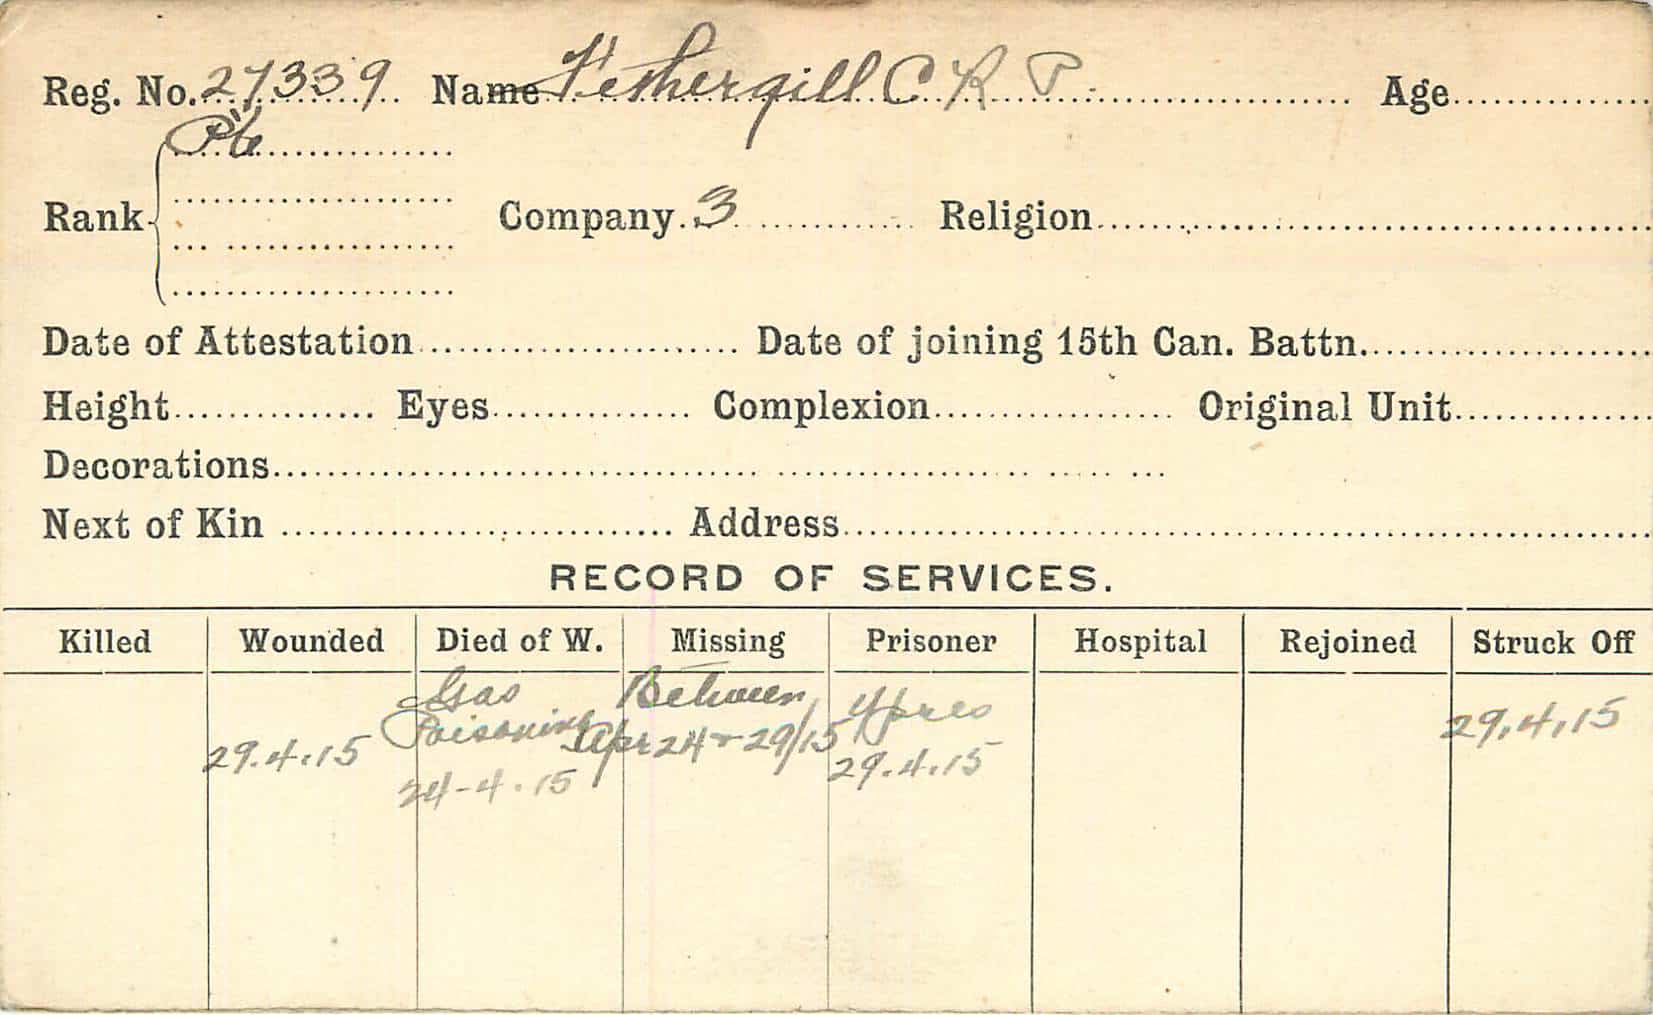 Reg. No. 27339 Name Fethergill C R P. Age
Pte
Rank Company 3 Religion
Date of Attestation Date of joining 15th Can. Battn.
Height Eyes Complexion Original Unit
Decorations
Next of Kin Address
RECORD OF SERVICES.
Killed Wounded Died of W. Missing Prisoner Hospital Rejoined Struck Off
29.4.15 Gas Poisoning 24-4.15 Between Apr 24 + 29/15 Ypres 29.4.15 29.4.15